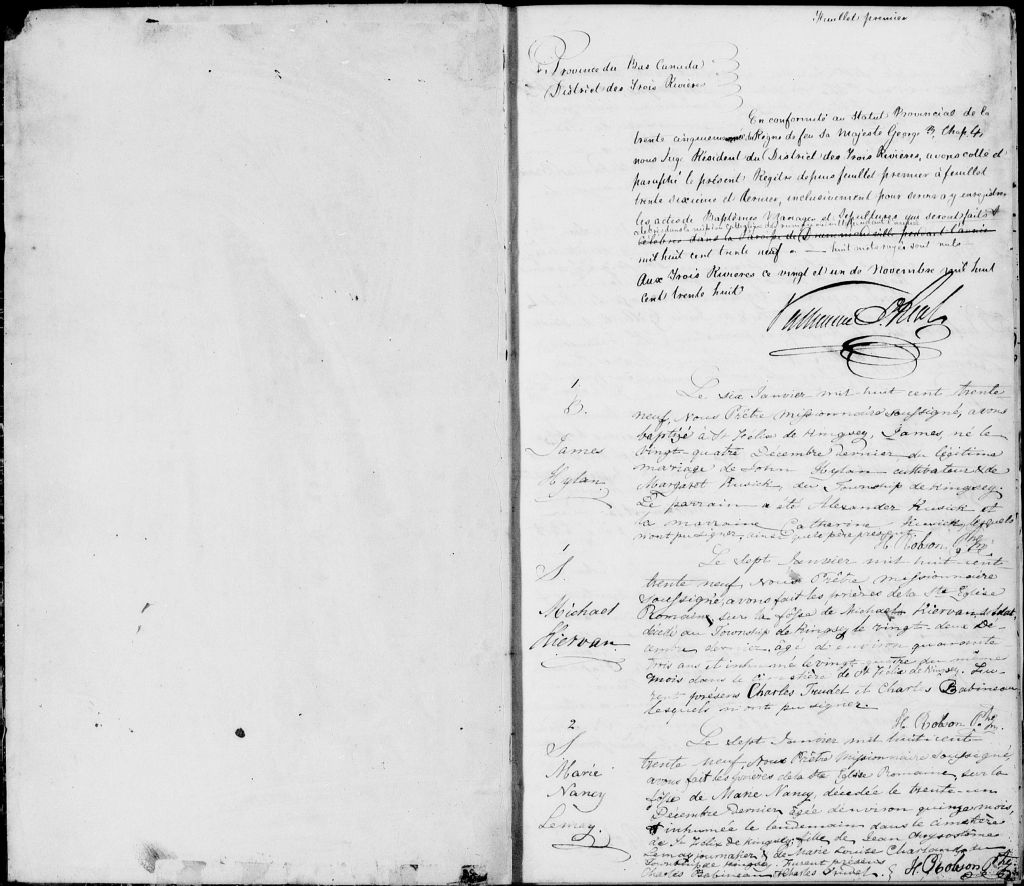 Feuillet premier
Province du Bas Canada
District des Trois Rivières
En conformité au Statut Provincial de la
trente cinquieme du Règne de feu Sa Majesté George 3, Chap. 4,
nous Juge Résident du District des Trois Rivières, avons cotté et
paraphé le présent Régitre depuis feuillet premier à feuillet
trente dixieme et dernier, inclusivement pour servir a y enregistrer
les actes de Baptêmes Mariages et Sépultures qui seront faits &
célébrés dans la Paroisse de Drummondville pendant l'année
mil huit cent trente neuf — huit mots rayés sont nuls
Aux Trois Rivieres ce vingt et un de Novembre mil huit
cent trente huit
1
B.
James
Hylan
Le six Janvier mil huit cent trente
neuf, Nous Prêtre Missionnaire soussigné, avons
baptizé à St Félix de Kingsey, James, né le
vingt-quatre Décembre dernier, du légitime
mariage de John Hylan cultivateur & de
Margaret Kusick, du Township de Kingsey.
Le parrain a été Alexander Kusick et
la marraine Catharine Kusick, lesquels
n'ont pu signer, ainsi que le père présent.
H. Robson Ptre M.
1
S.
Michael
Kiervan
Le sept Janvier mil huit cent
trente neuf, Nous Prêtre missionnaire
soussigné, avons fait les prières de la Ste Eglise
Romaine sur la fosse de Michael Kiervan
décédé au Township de Kingsey le vingt-deux Dé-
cembre dernier, âgé d'environ quarante
trois ans et inhumé le vingt quatre du même
mois dans le cimetière de St Félix de Kingsey. Fu-
rent présens Charles Trudel et Charles Babineau
lesquels n'ont pu signer.
H. Robson Ptre M.
2
S.
Marie
Nancy
Lemay.
Le sept Janvier mil huit cent
trente neuf, Nous Prêtre Missionnaire soussigné,
avons fait les prières de la Ste Eglise Romaine, sur la
fosse de Marie Nancy, décédée le trente-un
Décembre dernier, âgée d'environ quinze mois,
et inhumée le lendemain dans le cimetière
de St Félix de Kingsey, fille de Jean Chrysostôme
Lemay journalier & de Marie Louise Charland de
Township de Kingsey. Furent présens
Charles Babineau & Charles Trudel.
H. Robson Ptre